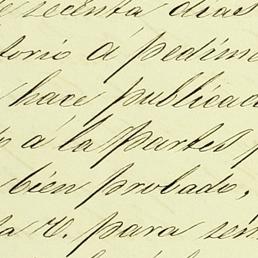 sesenta dias
torio á pedime
hace publicad
á la partes p
bien probado,
ta V. para sen